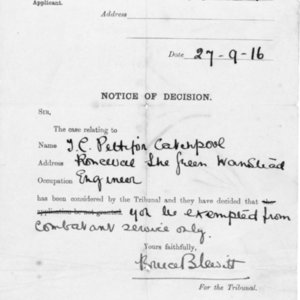 Applicant.
Address
Date 27-9-16
NOTICE OF DECISION.
SIR,
The case relating to
Name J. C. Pettifor Catchpool
Address The Green Wanstead
Occupation Engineer
has been considered by the Tribunal and they have decided that the
application be not granted you be exempted from
combatant service only.
Yours faithfully,
Bruce Blewitt
For the Tribunal.